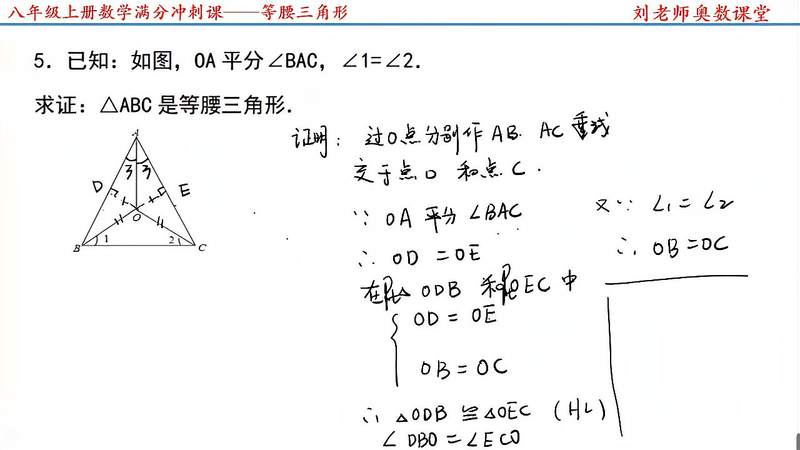 八年级上册数学满分冲刺课——等腰三角形
刘老师奥数课堂
5．已知：如图，OA 平分∠BAC，∠1=∠2．
求证：△ABC 是等腰三角形．
A
3 3
D E
O
B 1 2 C
证明：过O点分别作 AB. AC 垂线
交于点D 和点 C.
∵ OA 平分 ∠BAC
∴ OD = OE
在Rt△ ODB 和Rt OEC 中
OD = OE
OB = OC
∴ △ODB ≌ △OEC (HL)
∠DBO = ∠ECO
又∵ ∠1 = ∠2
∴ OB = OC